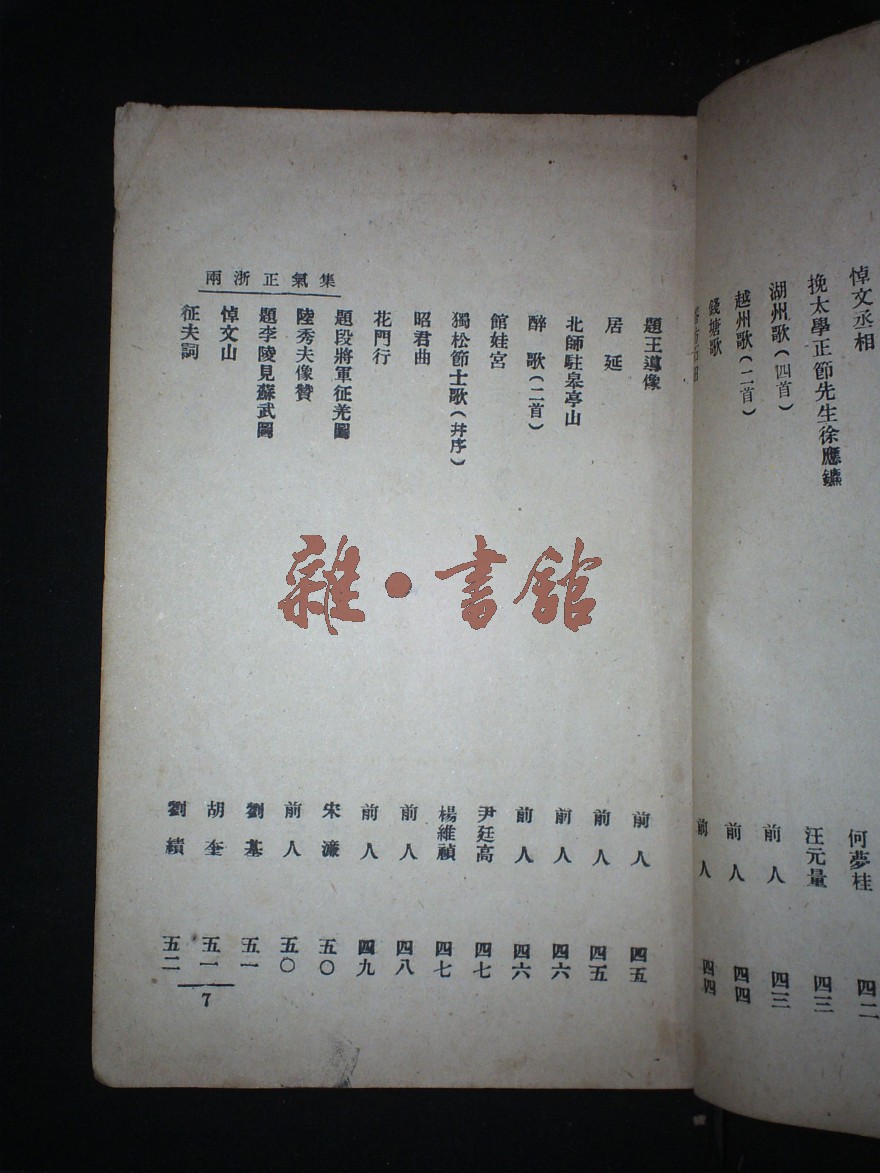 悼文丞相 何夢桂 四二
挽太學正節先生徐應鑣 汪元量 四三
湖州歌(四首) 前人 四三
越州歌(二首) 前人 四四
錢塘歌 前人 四四
題王導像 前人 四五
居延 前人 四五
北師駐皋亭山 前人 四六
醉歌(二首) 前人 四六
館娃宮 尹廷高 四七
獨松節士歌(幷序) 楊維禎 四七
昭君曲 前人 四八
花門行 前人 四九
題段將軍征羌圖 宋濂 五〇
陸秀夫像贊 前人 五〇
題李陵見蘇武圖 劉基 五一
悼文山 胡奎 五一
征夫詞 劉績 五二
兩浙正氣集
7
雜·書館